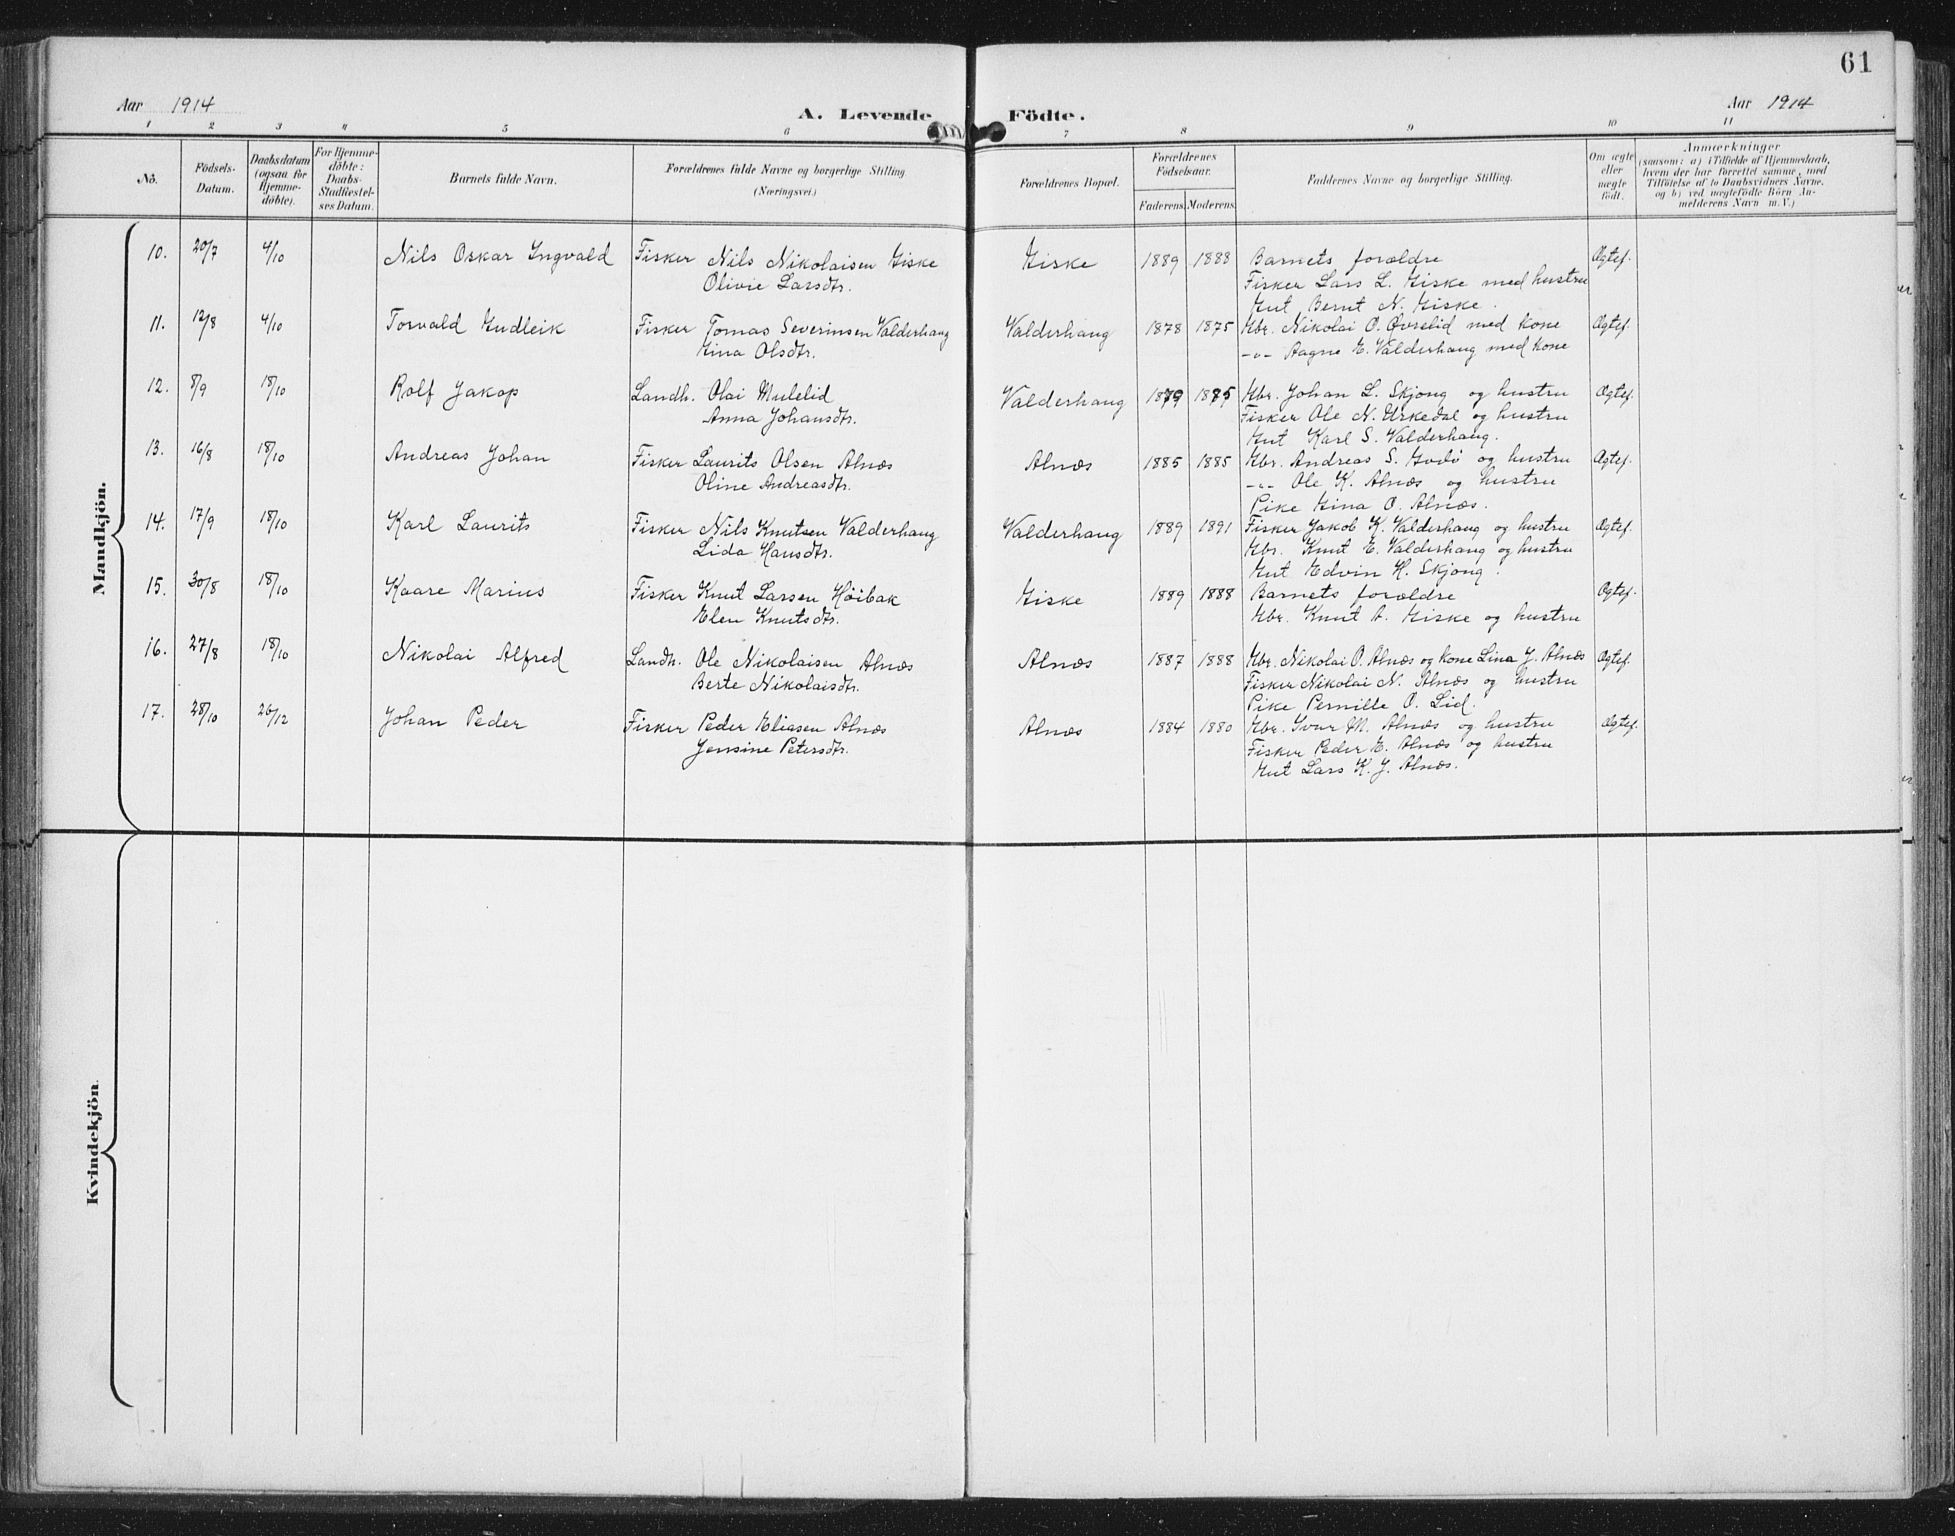 61
Aar 1914
A. Levende Födte.
Aar 1914
1 2 3 4 5 6 7 8 9 10 11
No.
Födsels-Datum.
Daabsdatum (ogsaa for Hjemme-döbte).
For Hjemme-döbte: Daabs-Stadfæstel-ses Datum.
Barnets fulde Navn.
Forældrenes fulde Navne og borgerlige Stilling (Næringsvei.)
Forældrenes Bopæl.
Forældrenes Födselsaar.
Faderens. Moderens.
Faddernes Navne og borgerlige Stilling.
Om ægte eller uægte födt.
Anmærkninger
(saasom: a) i Tilfælde af Hjemmedaab,
hvem der har forrettet samme, med
Tilföielse af to Daabsvidners Navne,
og b) ved uægtefödte Börn An-
melderens Navn m.V.)
Mandkjön.
10. 20/7 4/10 Nils Oskar Ingvald Fisker Nils Nikolaisen Giske Giske 1889 1888 Barnets forældre Ægtef.
Olivie Larsdtr. Fisker Lars L. Giske med hustru
Gut Bernt N. Giske.
11. 12/8 4/10 Torvald Gudleik Fisker Tomas Severinsen Valderhaug Valderhaug 1878 1875 Gbr. Nikolai O. Øvrelid med kone Ægtef.
Gina Olsdtr. -"- Aagne E. Valderhaug med kone
12. 8/9 18/10 Rolf Jakop Landh. Olai Mulelid Valderhaug 1879 1875 Gbr. Johan L. Skjong og hustru Ægtef.
Anna Johansdtr. Fisker Ole N. Urkedal og hustru
Gut Karl S. Valderhaug.
13. 16/8 18/10 Andreas Johan Fisker Laurits Olsen Alnæs Alnæs 1885 1885 Gbr. Andreas S. Godö og hustru Ægtef.
Oline Andreasdtr. -"- Ole K. Alnæs og hustru
Pike Gina O. Alnæs.
14. 17/9 18/10 Karl Laurits Fisker Nils Knutsen Valderhaug Valderhaug 1889 1891 Fisker Jakob K. Valderhaug og hustru Ægtef.
Lida Hansdtr. Gbr. Knut E. Valderhaug og hustru
Gut Edvin H. Skjong.
15. 30/8 18/10 Kaare Marius Fisker Knut Larsen Höibak Giske 1889 1888 Barnets forældre Ægtef.
Elen Knutsdtr. Gbr. Knut A. Giske og hustru
16. 27/8 18/10 Nikolai Alfred Landh. Ole Nikolaisen Alnæs Alnæs 1887 1888 Gbr. Nikolai O. Alnæs og kone Lina J. Alnæs Ægtef.
Berte Nikolaisdtr. Fisker Nikolai N. Alnæs og hustru
Pike Pernille O. Lid.
17. 28/10 26/12 Johan Peder Fisker Peder Eliasen Alnæs Alnæs 1884 1880 Gbr. Ivar M. Alnæs og hustru Ægtef.
Jensine Petersdtr. Fisker Peder E. Alnæs og hustru
Gut Lars K. J. Alnæs.
Kvindekjön.